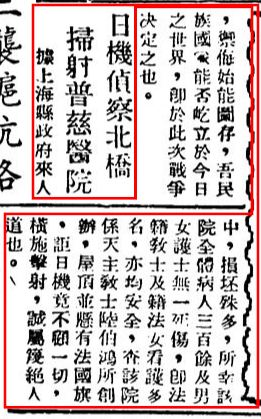 ，禦侮始能圖存，吾民
族國家能否屹立於今日
之世界，卽於此次戰爭
決定之也。
日機偵察北橋
掃射普慈醫院
據上海縣政府來人
襲滬杭路
中，損坯殊多，所幸該
院全體病人三百餘及男
女護士無一死傷，卽法
籍教士及籍法女看護多
名，亦均安全，查該院
係天主教士陸伯鴻所創
辦，屋頂並懸有法國旗
，詎日機竟不顧一切，
橫施擊射，誠屬篾絕人
道也。